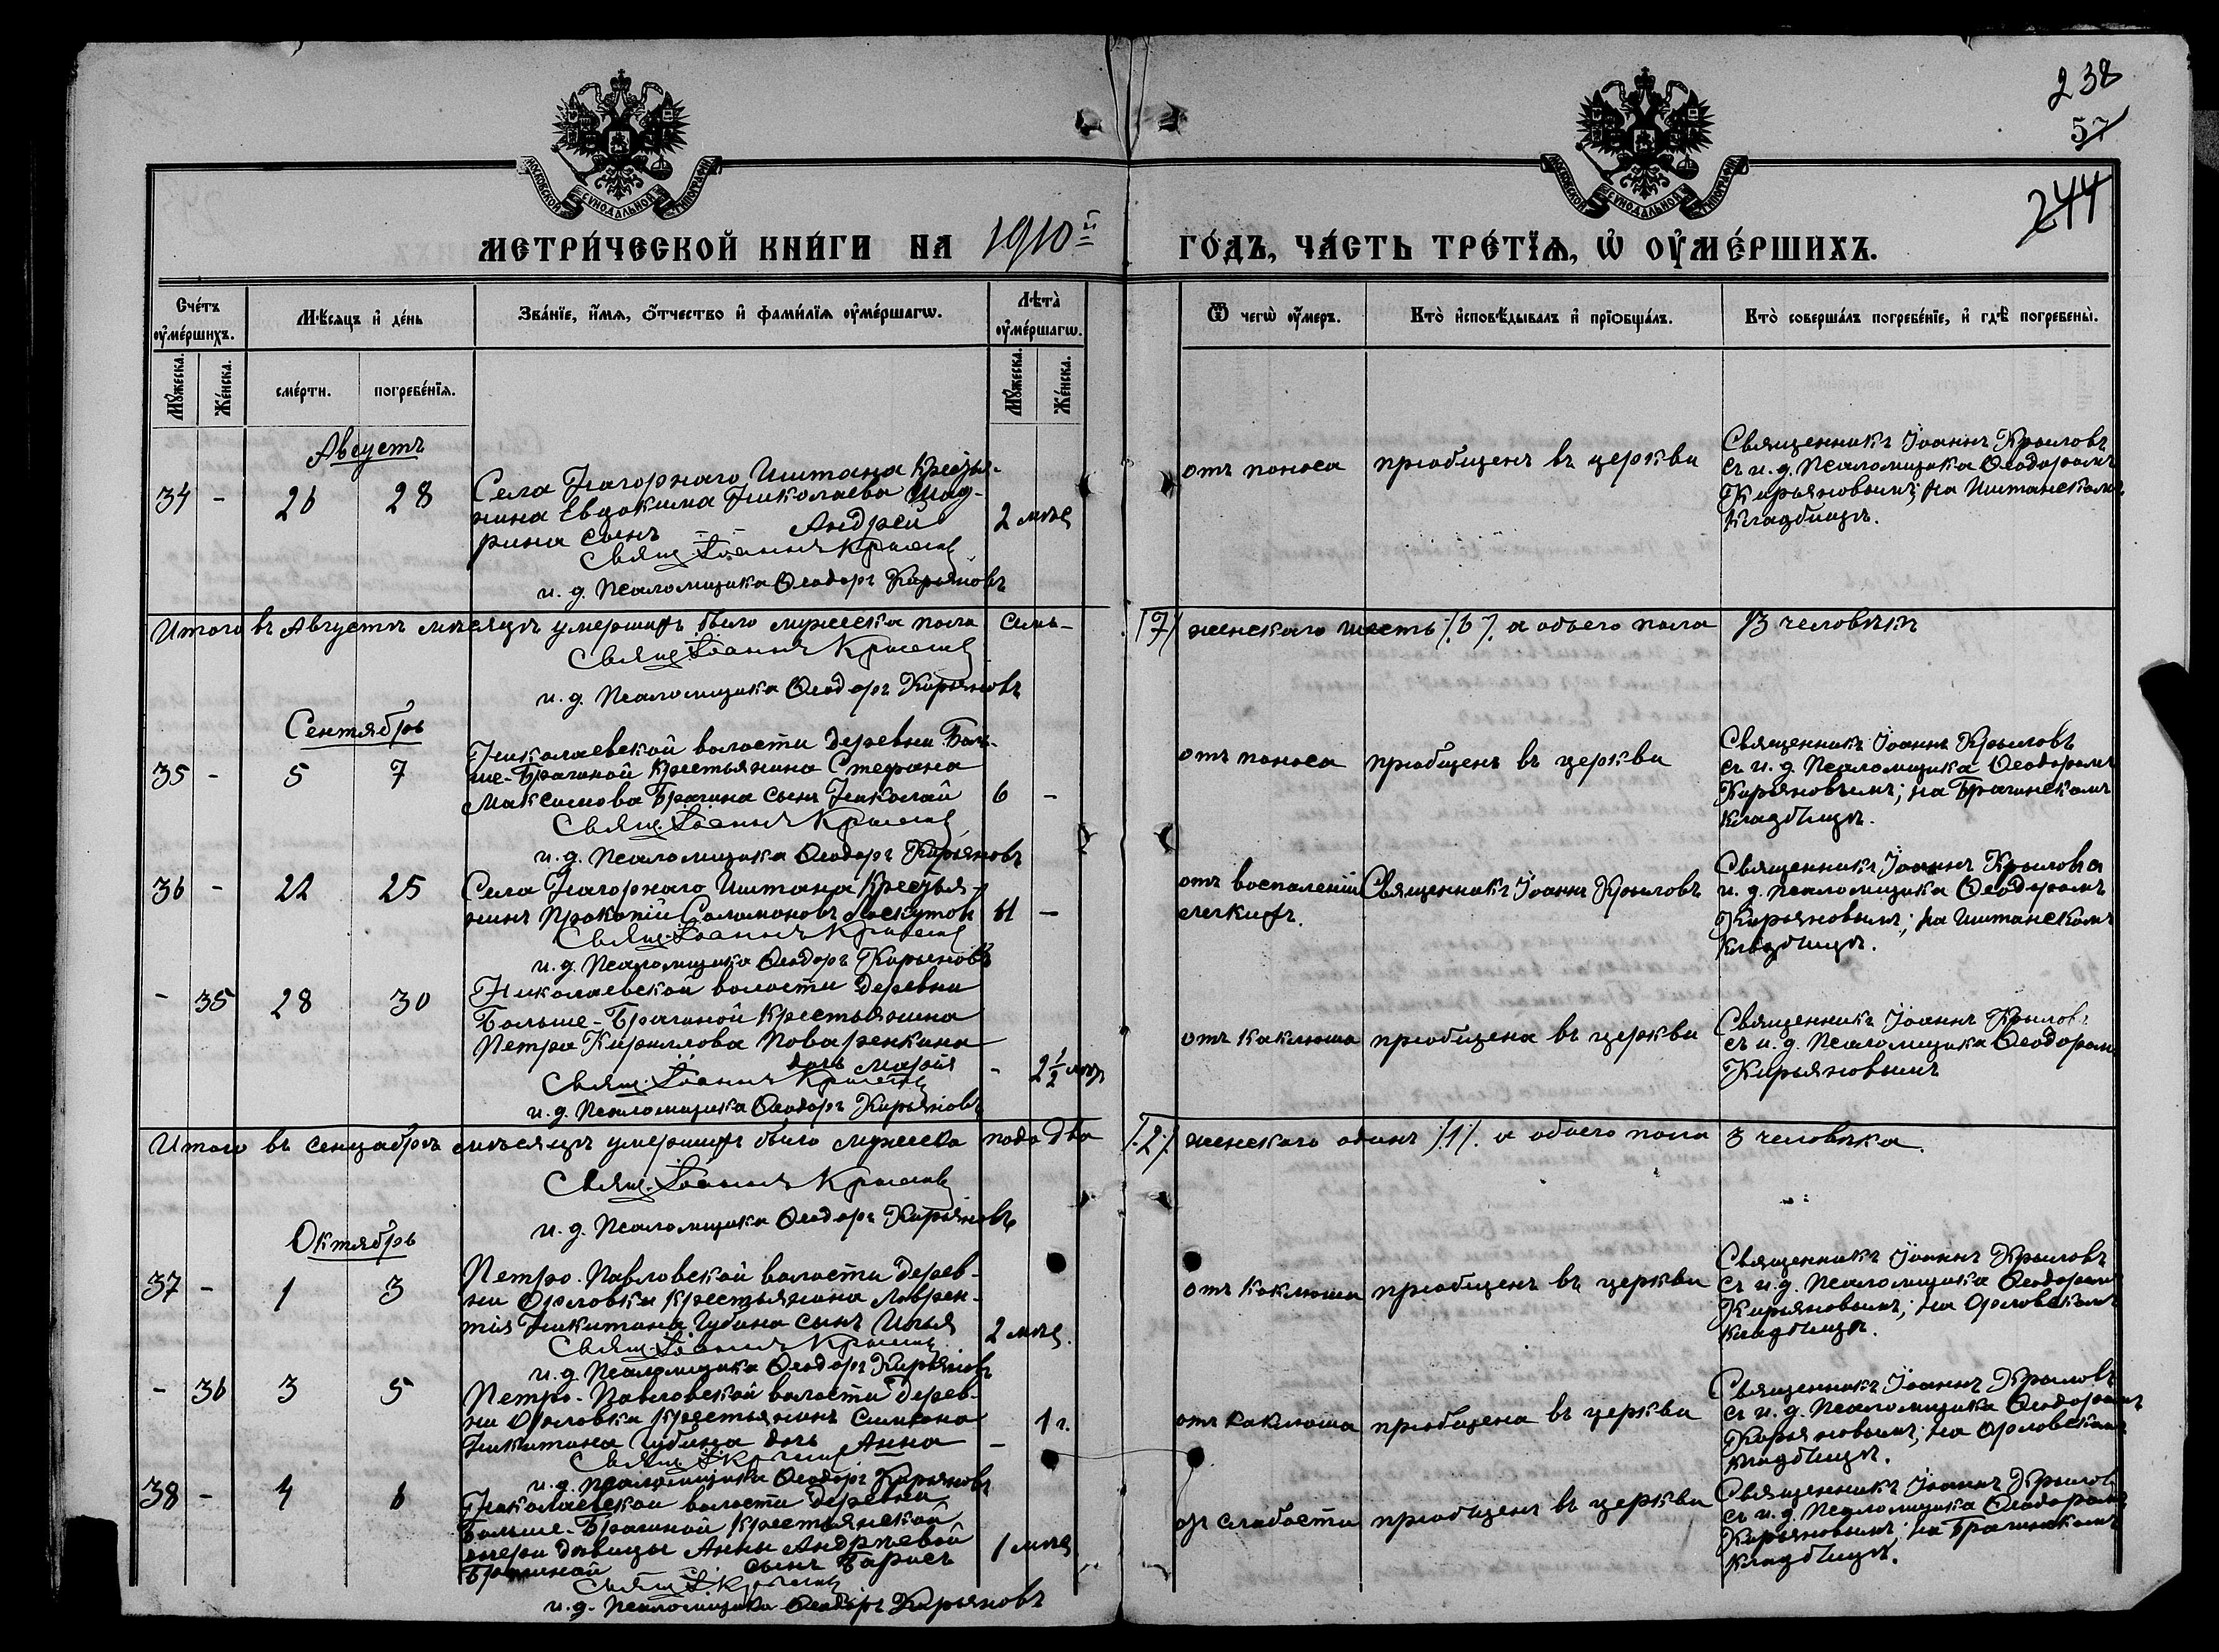 238
57
244
МОСКОВСКОЙ СѴНОДАЛЬНОЙ ТИПОГРАФІИ
МОСКОВСКОЙ СѴНОДАЛЬНОЙ ТИПОГРАФІИ
МЕТРИ́ЧЕСКОЙ КНИ́ГИ НА 1910й ГО́ДЪ, ЧА́СТЬ ТРЕ́ТІѦ, Ѡ҆ ОУ҆МЕ́РШИХЪ.
Сче́тъ оу҆ме́ршихъ.
Мѣ́сѧцъ и҆ де́нь
Зва́нїе, и҆́мѧ, ѻ҆́тчество и҆ фами́лїѧ оу҆ме́ршагѡ.
Лѣта̀ оу҆ме́ршагѡ.
Ѿ чегѡ̀ оу҆́меръ.
Кто̀ и҆сповѣ́дывалъ и҆ прїѡбща́лъ.
Кто̀ соверша́лъ погребе́нїе, и҆ гдѣ̀ погребены̀.
Мꙋ́жеска.
Же́нска.
сме́рти.
погребе́нїѧ.
Мꙋ́жеска.
Же́нска.
Августъ
34 - 26 28
Села Нагорнаго Иштана крестья-
нина Евдокима Николаева Шад-
рина сынъ Андрей
2 мѣс
Свящ. Іоаннъ Крылов
и. д. Псаломщика Ѳеодоръ Кирьяновъ
отъ поноса
пріобщенъ въ церкви
Священникъ Іоаннъ Крыловъ
съ и. д. Псаломщика Ѳеодоромъ
Кирьяновымъ; на Иштанскомъ
кладбищѣ.
Итого въ Августѣ мѣсяцѣ умершихъ было мужеска пола семь- /7/ женскаго шесть /6/. а обоего пола 13 человѣкъ
Свящ. Іоаннъ Крылов
и. д. Псаломщика Ѳеодоръ Кирьяновъ
Сентябрь
35 - 5 7
Николаевской волости деревни Боль-
ше-Брагиной крестьянина Стефана
Максимова Брагина сынъ Николай
6 -
Свящ. Іоаннъ Крылов
и. д. Псаломщика Ѳеодоръ Кирьяновъ
отъ поноса
пріобщенъ въ церкви
Священникъ Іоаннъ Крыловъ
съ и. д. Псаломщика Ѳеодоромъ
Кирьяновымъ; на Брагинскомъ
кладбищѣ.
36 - 22 25
Села Нагорнаго Иштана крестья-
нинъ Прокопій Соломоновъ Лоскутов
61 -
Свящ. Іоаннъ Крылов
и. д. Псаломщика Ѳеодоръ Кирьяновъ
отъ воспаленія
легкихъ.
Священникъ Іоаннъ Крыловъ
Священникъ Іоаннъ Крыловъ
и. д. Псаломщика Ѳеодоромъ
Кирьяновымъ; на Иштанскомъ
кладбищѣ.
- 35 28 30
Николаевской волости деревни
Больше-Брагиной крестьянина
Петра Кириллова Поваренкина
дочь Марія
- 2 1/2 мѣс
Свящ. Іоаннъ Крылов
и. д. Псаломщика Ѳеодоръ Кирьяновъ
отъ коклюша
пріобщена въ церкви
Священникъ Іоаннъ Крыловъ
съ и. д. Псаломщика Ѳеодоромъ
Кирьяновымъ
Итого въ сентябрѣ мѣсяцѣ умершихъ было мужеска пола два /.2./ женскаго одинъ /1/. а обоего пола 3 человѣка.
Свящ. Іоаннъ Крылов
и. д. Псаломщика Ѳеодоръ Кирьяновъ
Октябрь
37 - 1 3
Петро-Павловской волости дерев-
ни Орловки крестьянина Лаврен-
тія Никитина Губина сынъ Илья
2 мѣс.
Свящ. Іоаннъ Крылов
и. д. Псаломщика Ѳеодоръ Кирьяновъ
отъ коклюша
пріобщенъ въ церкви
Священникъ Іоаннъ Крыловъ
съ и. д. Псаломщика Ѳеодоромъ
Кирьяновымъ; на Орловскомъ
кладбищѣ.
- 36 3 5
Петро-Павловской волости дерев-
ни Орловка крестьянинъ Симеона
Никитина Губина дочь Анна
- 1 г.
Свящ. І. Крылов
и. д. Псаломщика Ѳеодоръ Кирьяновъ
отъ коклюша
пріобщена въ церкви
Священникъ Іоаннъ Крыловъ
съ и. д. Псаломщика Ѳеодоромъ
Кирьяновымъ; на Орловскомъ
кладбищѣ.
38 - 4 6
Николаевской волости деревни
Больше-Брагиной крестьянской
дочери дѣвицы Анны Андреевой
Брагиной сынъ Борисъ
1 мѣс
Свящ. І. Крылов
и. д. Псаломщика Ѳеодоръ Кирьяновъ
отъ слабости
пріобщенъ въ церкви
Священникъ Іоаннъ Крылов
съ и. д. Псаломщика Ѳеодоромъ
Кирьяновымъ; на Брагинскомъ
кладбищѣ.